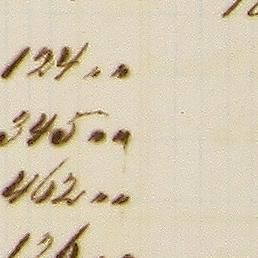 124 " "
345 " "
462 " "